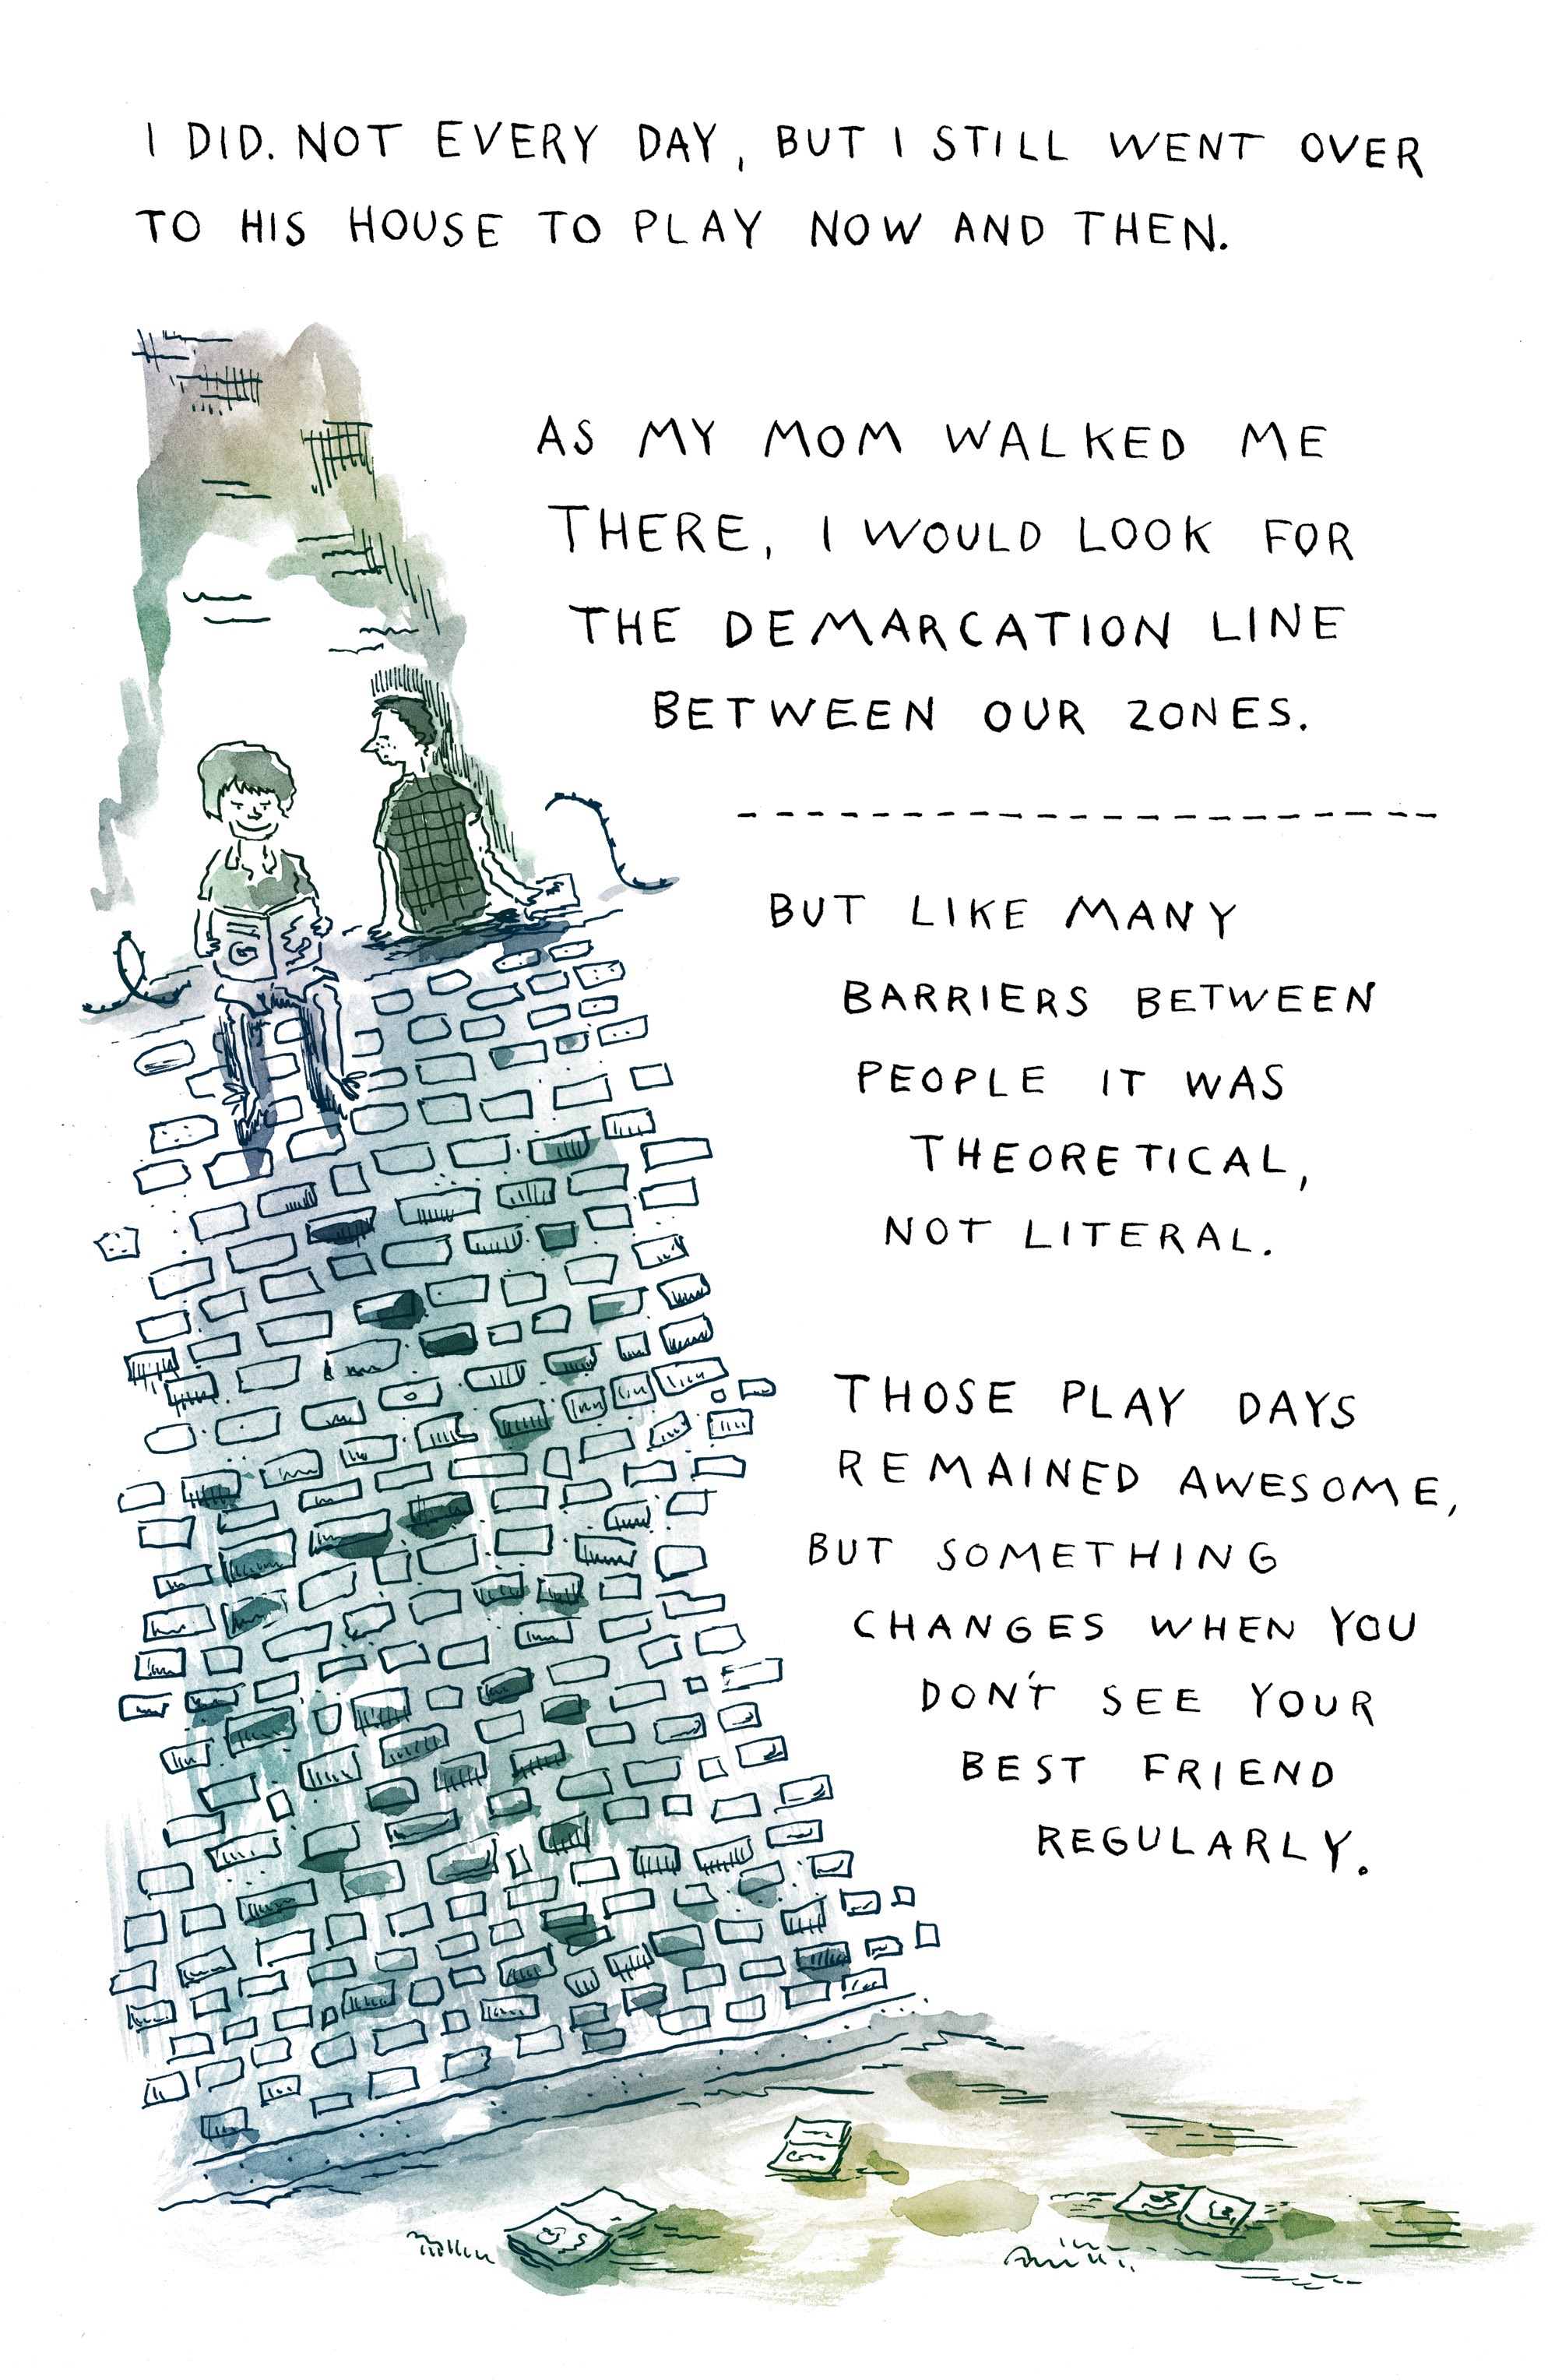 I DID. NOT EVERY DAY, BUT I STILL WENT OVER
TO HIS HOUSE TO PLAY NOW AND THEN.
AS MY MOM WALKED ME
THERE, I WOULD LOOK FOR
THE DEMARCATION LINE
BETWEEN OUR ZONES.
BUT LIKE MANY
BARRIERS BETWEEN
PEOPLE IT WAS
THEORETICAL,
NOT LITERAL.
THOSE PLAY DAYS
REMAINED AWESOME,
BUT SOMETHING
CHANGES WHEN YOU
DON'T SEE YOUR
BEST FRIEND
REGULARLY.